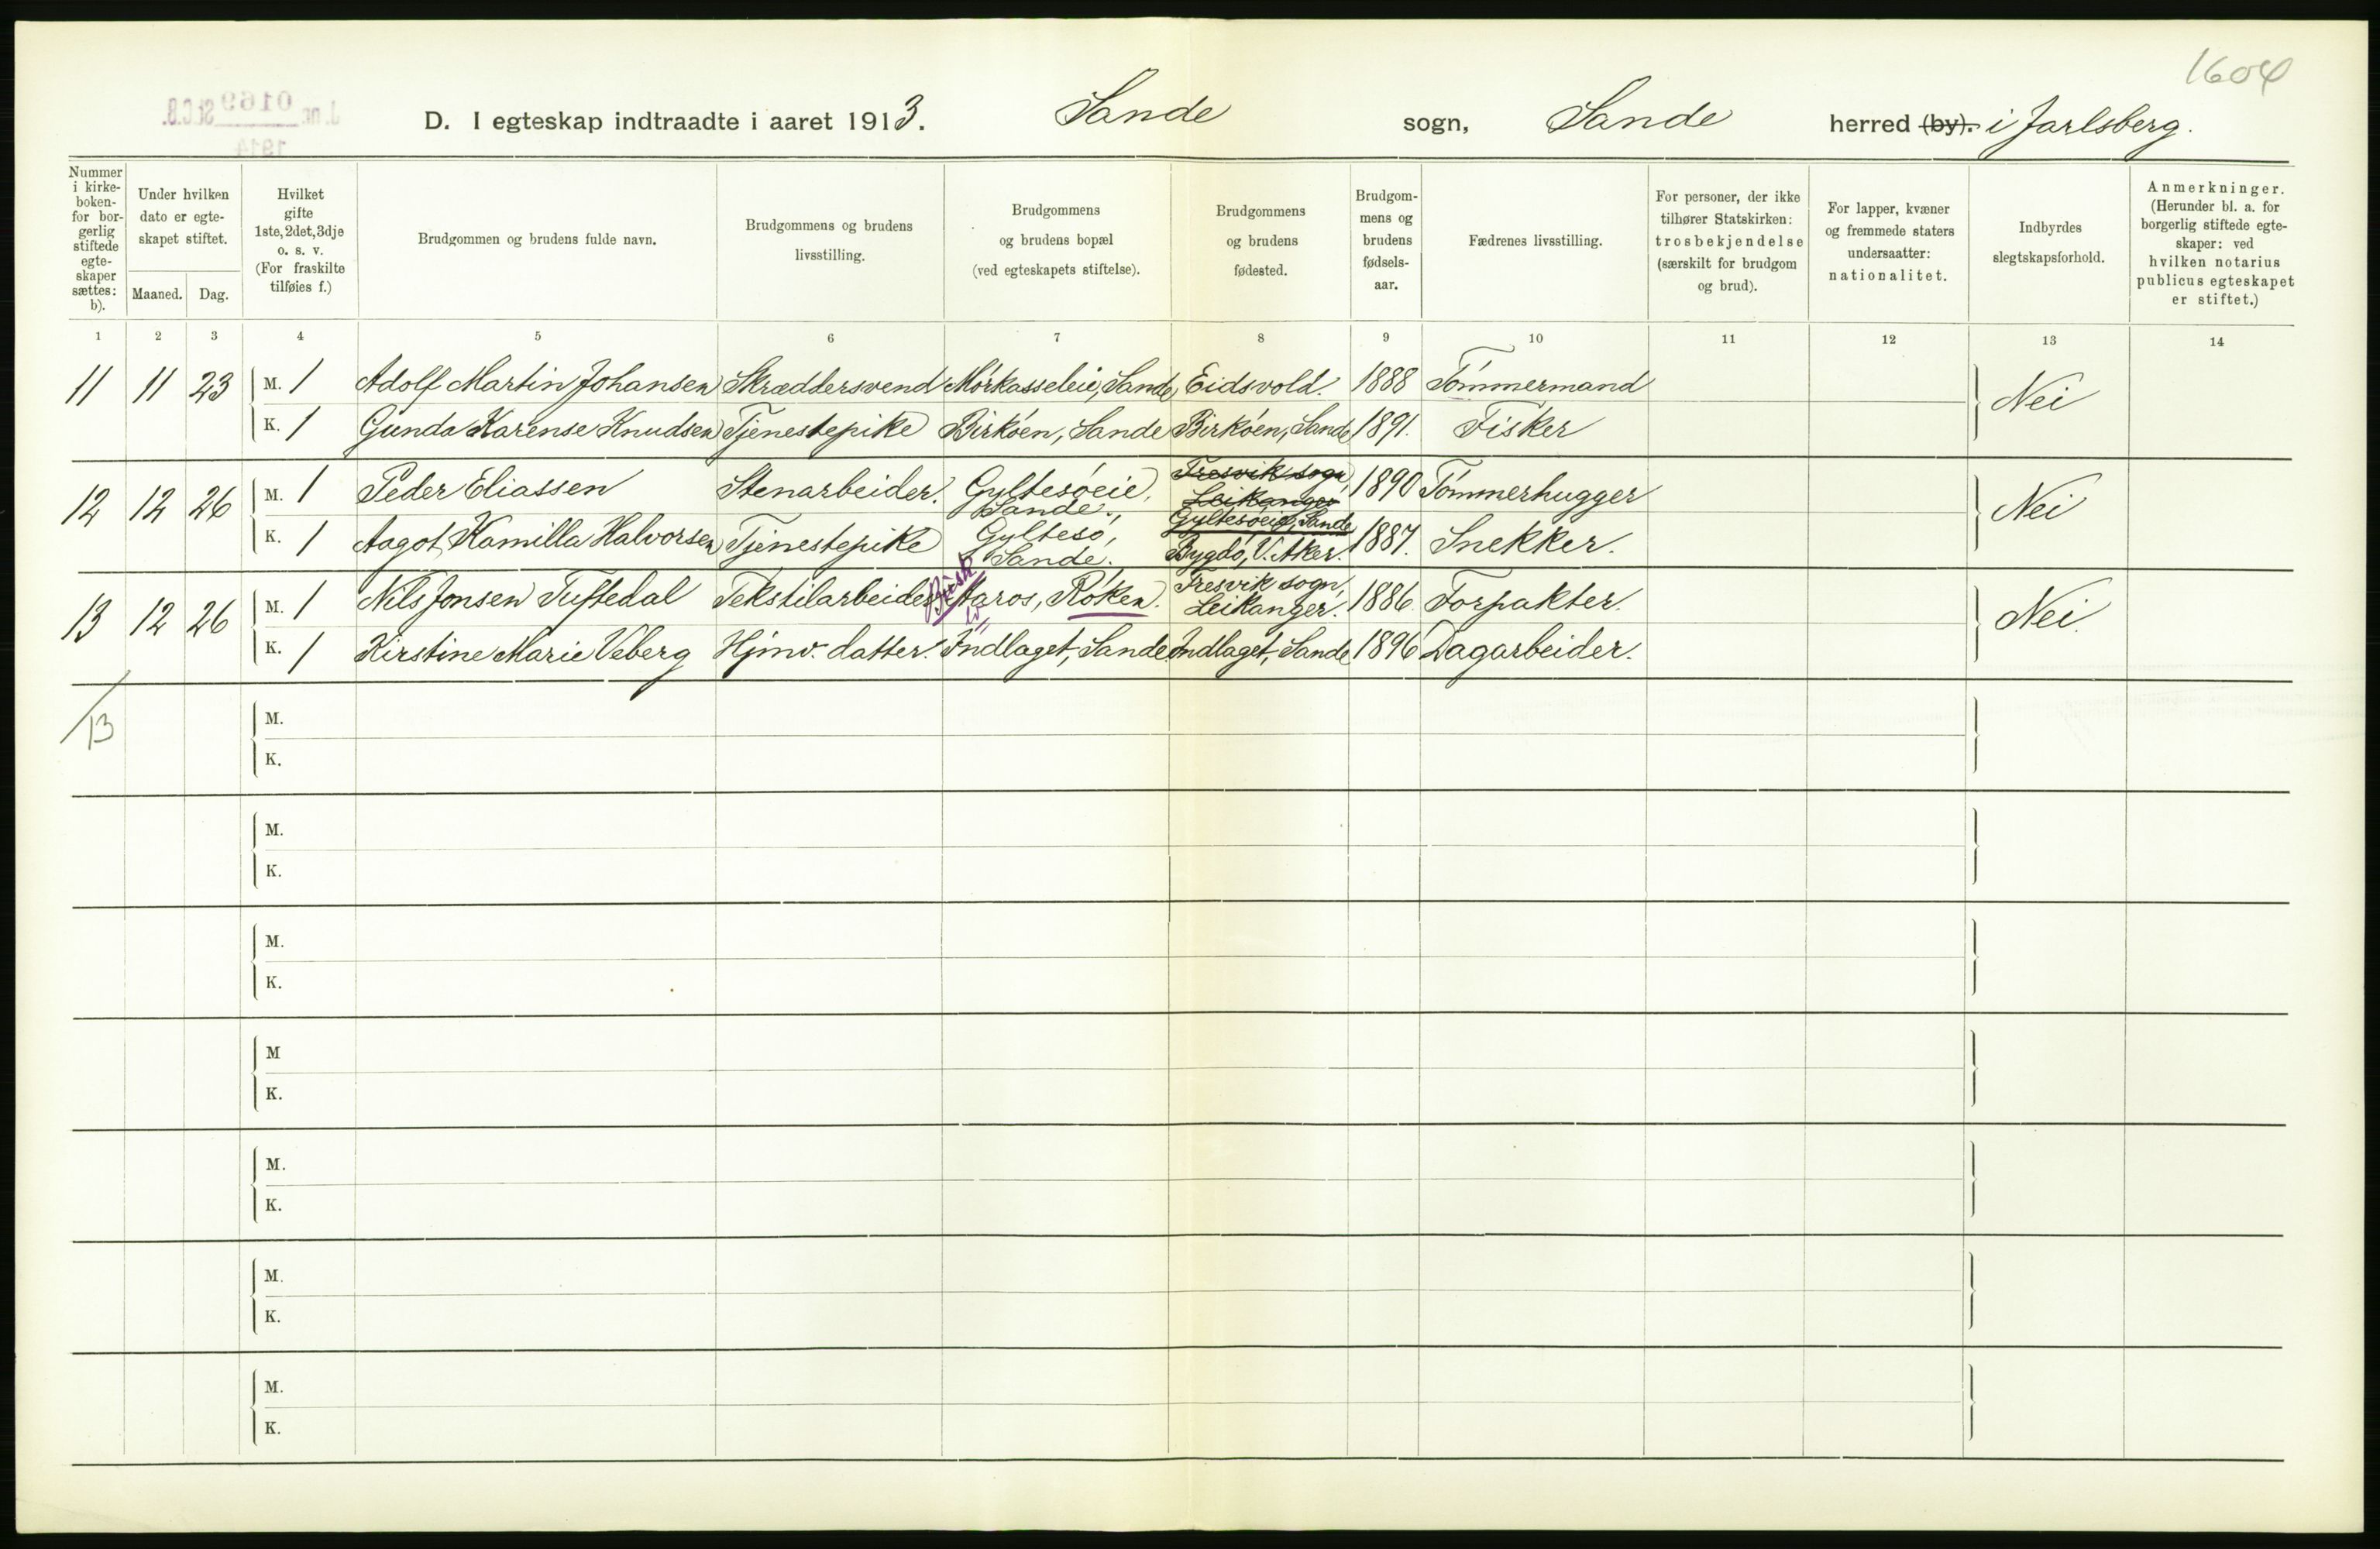 1604
J. nr. 0169 St.C.B.
1914
D. I egteskap indtraadte i aaret 1913. Sande sogn, Sande herred (by). i Jarlsberg.
Nummer i kirkeboken- for borgerlig stiftede egteskaper sættes: b).
Under hvilken dato er egteskapet stiftet.
Maaned. Dag.
Hvilket gifte 1ste, 2det, 3dje o. s. v. (For fraskilte tilføies f.)
Brudgommen og brudens fulde navn.
Brudgommens og brudens livsstilling.
Brudgommens og brudens bopæl (ved egteskapets stiftelse).
Brudgommens og brudens fødested.
Brudgommens og brudens fødselsaar.
Fædrenes livsstilling.
For personer, der ikke tilhører Statskirken: trosbekjendelse (særskilt for brudgom og brud).
For lapper, kvæner og fremmede staters undersaatter: nationalitet.
Indbyrdes slegtskapsforhold.
Anmerkninger. (Herunder bl. a. for borgerlig stiftede egteskaper: ved hvilken notarius publicus egteskapet er stiftet.)
1 2 3 4 5 6 7 8 9 10 11 12 13 14
11 11 23 M. 1 Adolf Martin Johansen Skræddersvend Mörkasseleie, Sande Eidsvold. 1888 Tömmermand Nei
K. 1 Gunda Karense Knudsen Tjenestepike Birköen, Sande Birköen, Sande 1891. Fisker
12 12 26 M. 1 Peder Eliassen Stenarbeider. Gyltesöeie, Sande. Fresvik sogn, Leikanger Gyltesöeie, Sande 1890 Tömmerhugger Nei
K. 1 Aagot Kamilla Halvorsen Tjenestepike Gyltesö, Sande. Bygdö, V. Aker. 1887. Snekker.
13 12 26 M. 1 Nils Jonsen Tuftedal Tekstilarbeider Busk Aaros, Röken. Fresvik sogn, Leikanger. 1886. Forpakter. Nei.
K. 1 Kirstine Marie Veberg Hjmv. datter. Indlaget, Sande. Indlaget, Sande 1896 Dagarbeider.
13
M.
K.
M.
K.
M.
K.
M
K.
M.
K.
M.
K.
M.
K.